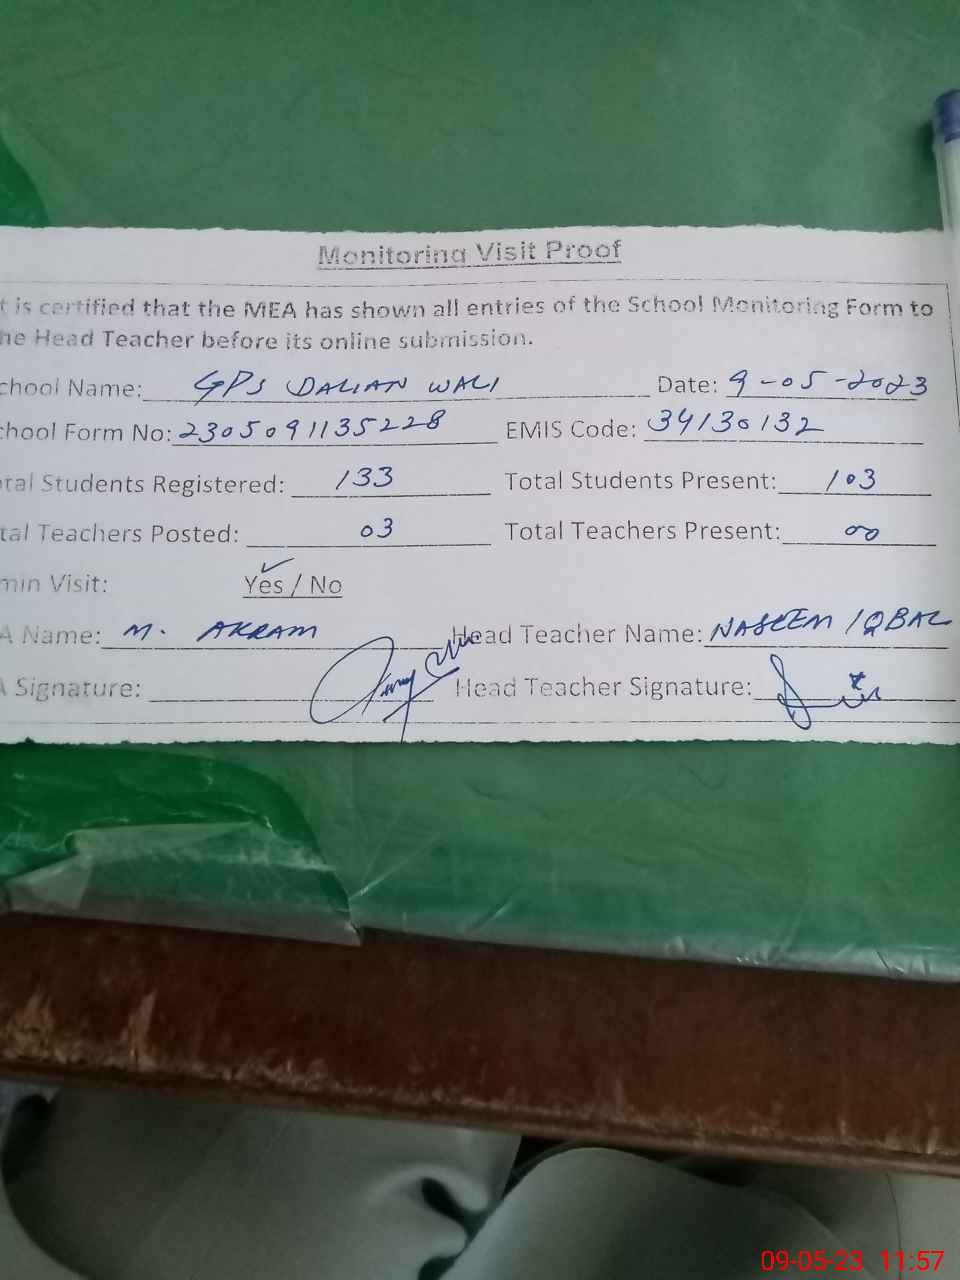 Monitoring Visit Proof
t is certified that the MEA has shown all entries of the School Monitoring Form to
he Head Teacher before its online submission.
chool Name: GPS DALIAN WALI Date: 9-05-2023
chool Form No: 2305091135228 EMIS Code: 34130132
tal Students Registered: 133 Total Students Present: 103
tal Teachers Posted: 03 Total Teachers Present: 00
min Visit: Yes / No
A Name: M. AKRAM Head Teacher Name: NASEEM IQBAL
A Signature: Head Teacher Signature:
09-05-23 11:57